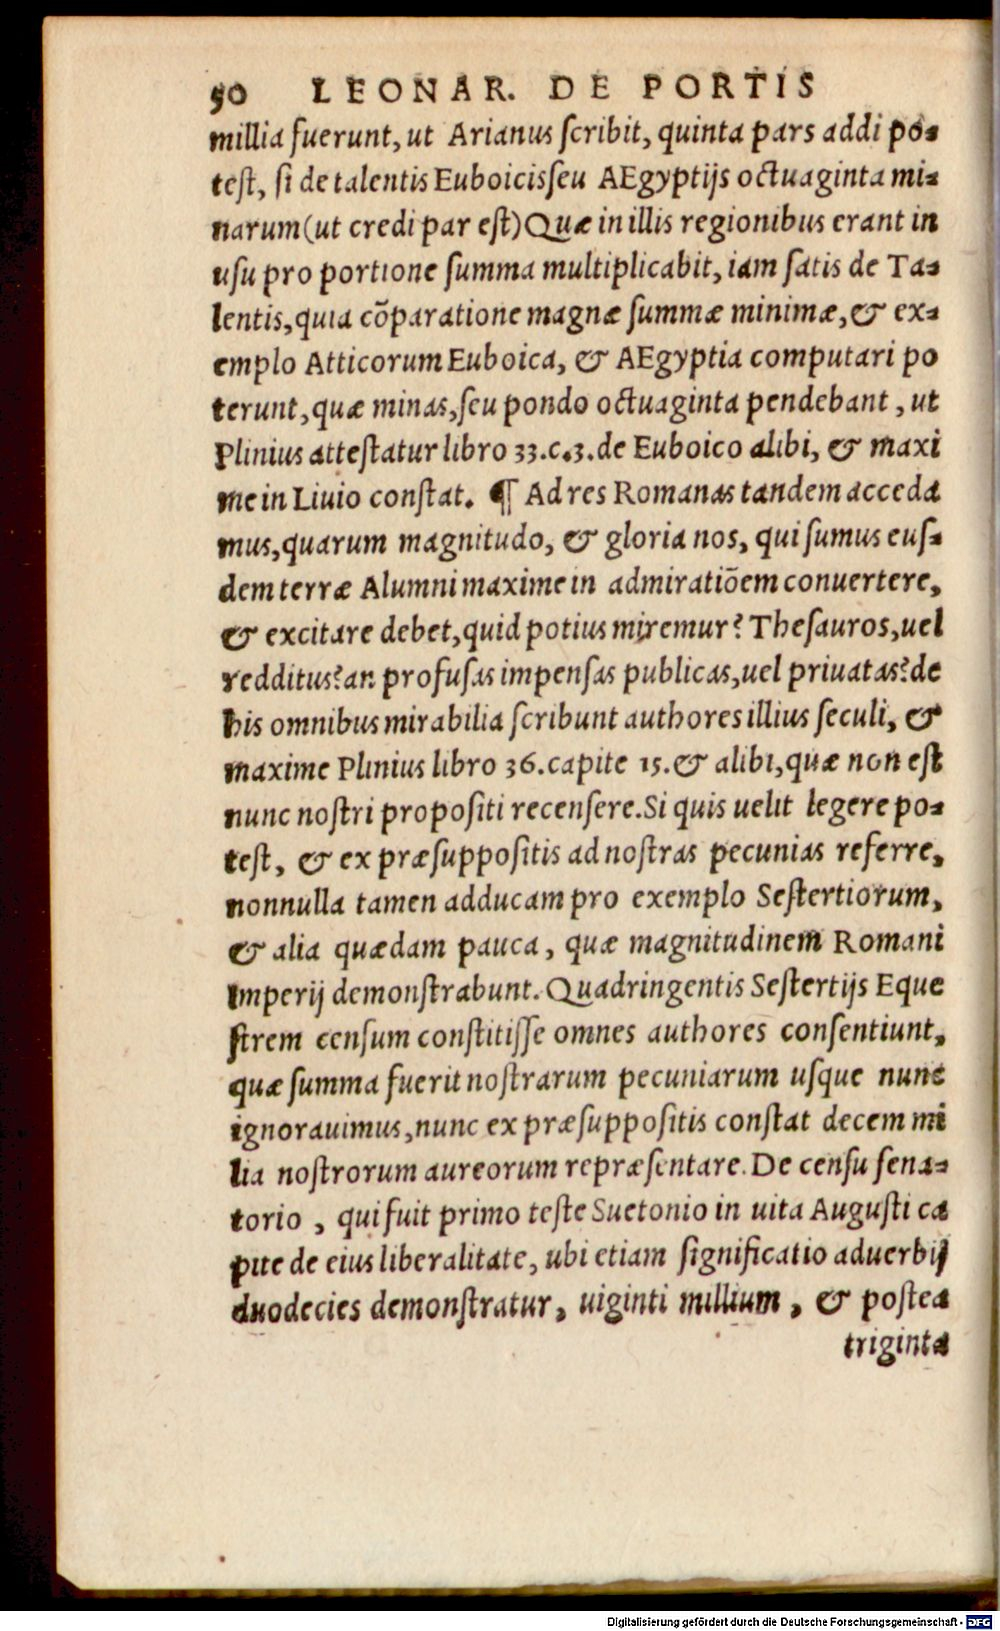 50 LEONAR. DE PORTIS
millia fuerunt, ut Arianus ſcribit, quinta pars addi po-
teſt, ſi de talentis Euboicis ſeu AEgyptijs octuaginta mi-
narum (ut credi par eſt) Quæ in illis regionibus erant in
uſu pro portione ſumma multiplicabit, iam ſatis de Ta-
lentis, quia cõparatione magnæ ſummæ minimæ, & ex-
emplo Atticorum Euboica, & AEgyptia computari po
terunt, quæ minas, ſeu pondo octuaginta pendebant, ut
Plinius atteſtatur libro 33.c.3. de Euboico alibi, & maxi
me in Liuio conſtat. ¶ Ad res Romanas tandem acceda
mus, quarum magnitudo, & gloria nos, qui ſumus euſ-
dem terræ Alumni maxime in admiratiõem conuertere,
& excitare debet, quid potius miremur? Theſauros, uel
redditus? an profuſas impenſas publicas, uel priuatas? de
his omnibus mirabilia ſcribunt authores illius ſeculi, &
maxime Plinius libro 36. capite 15. & alibi, quæ non eſt
nunc noſtri propoſiti recenſere. Si quis uelit legere po-
teſt, & ex præſuppoſitis ad noſtras pecunias referre,
nonnulla tamen adducam pro exemplo Seſtertiorum,
& alia quædam pauca, quæ magnitudinem Romani
Imperij demonſtrabunt. Quadringentis Seſtertijs Eque
ſtrem cenſum conſtitiſſe omnes authores conſentiunt,
quæ ſumma fuerit noſtrarum pecuniarum uſque nunc
ignorauimus, nunc ex præſuppoſitis conſtat decem mi
lia noſtrorum aureorum repræſentare. De cenſu ſena-
torio, qui fuit primo teſte Suetonio in uita Auguſti ca
pite de eius liberalitate, ubi etiam ſignificatio aduerbij
duodecies demonſtratur, uiginti millium, & poſtea
triginta
Digitalisierung gefördert durch die Deutsche Forschungsgemeinschaft - DFG